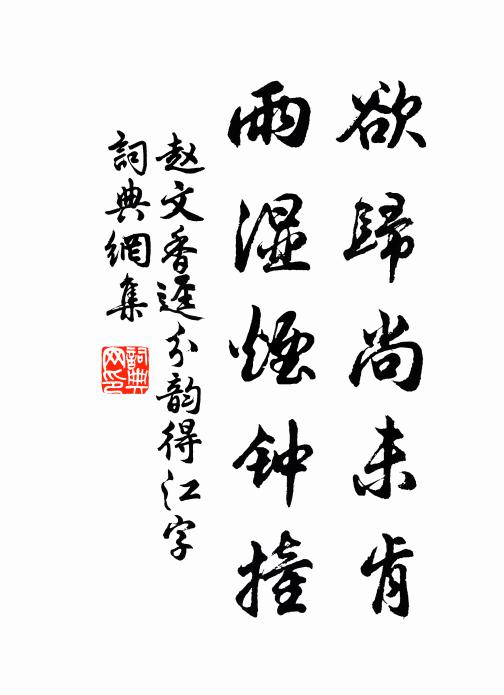 欲歸尚未肯
雨湿煙钟撞
赵文香逕分韵得江字
詞典網集
詞典網印